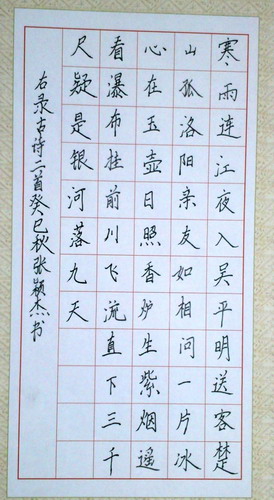 寒雨连江夜入吴平明送客楚
山孤洛阳亲友如相问一片冰
心在玉壶日照香炉生紫烟遥
看瀑布挂前川飞流直下三千
尺疑是银河落九天
右录古诗二首癸巳秋张颖杰书